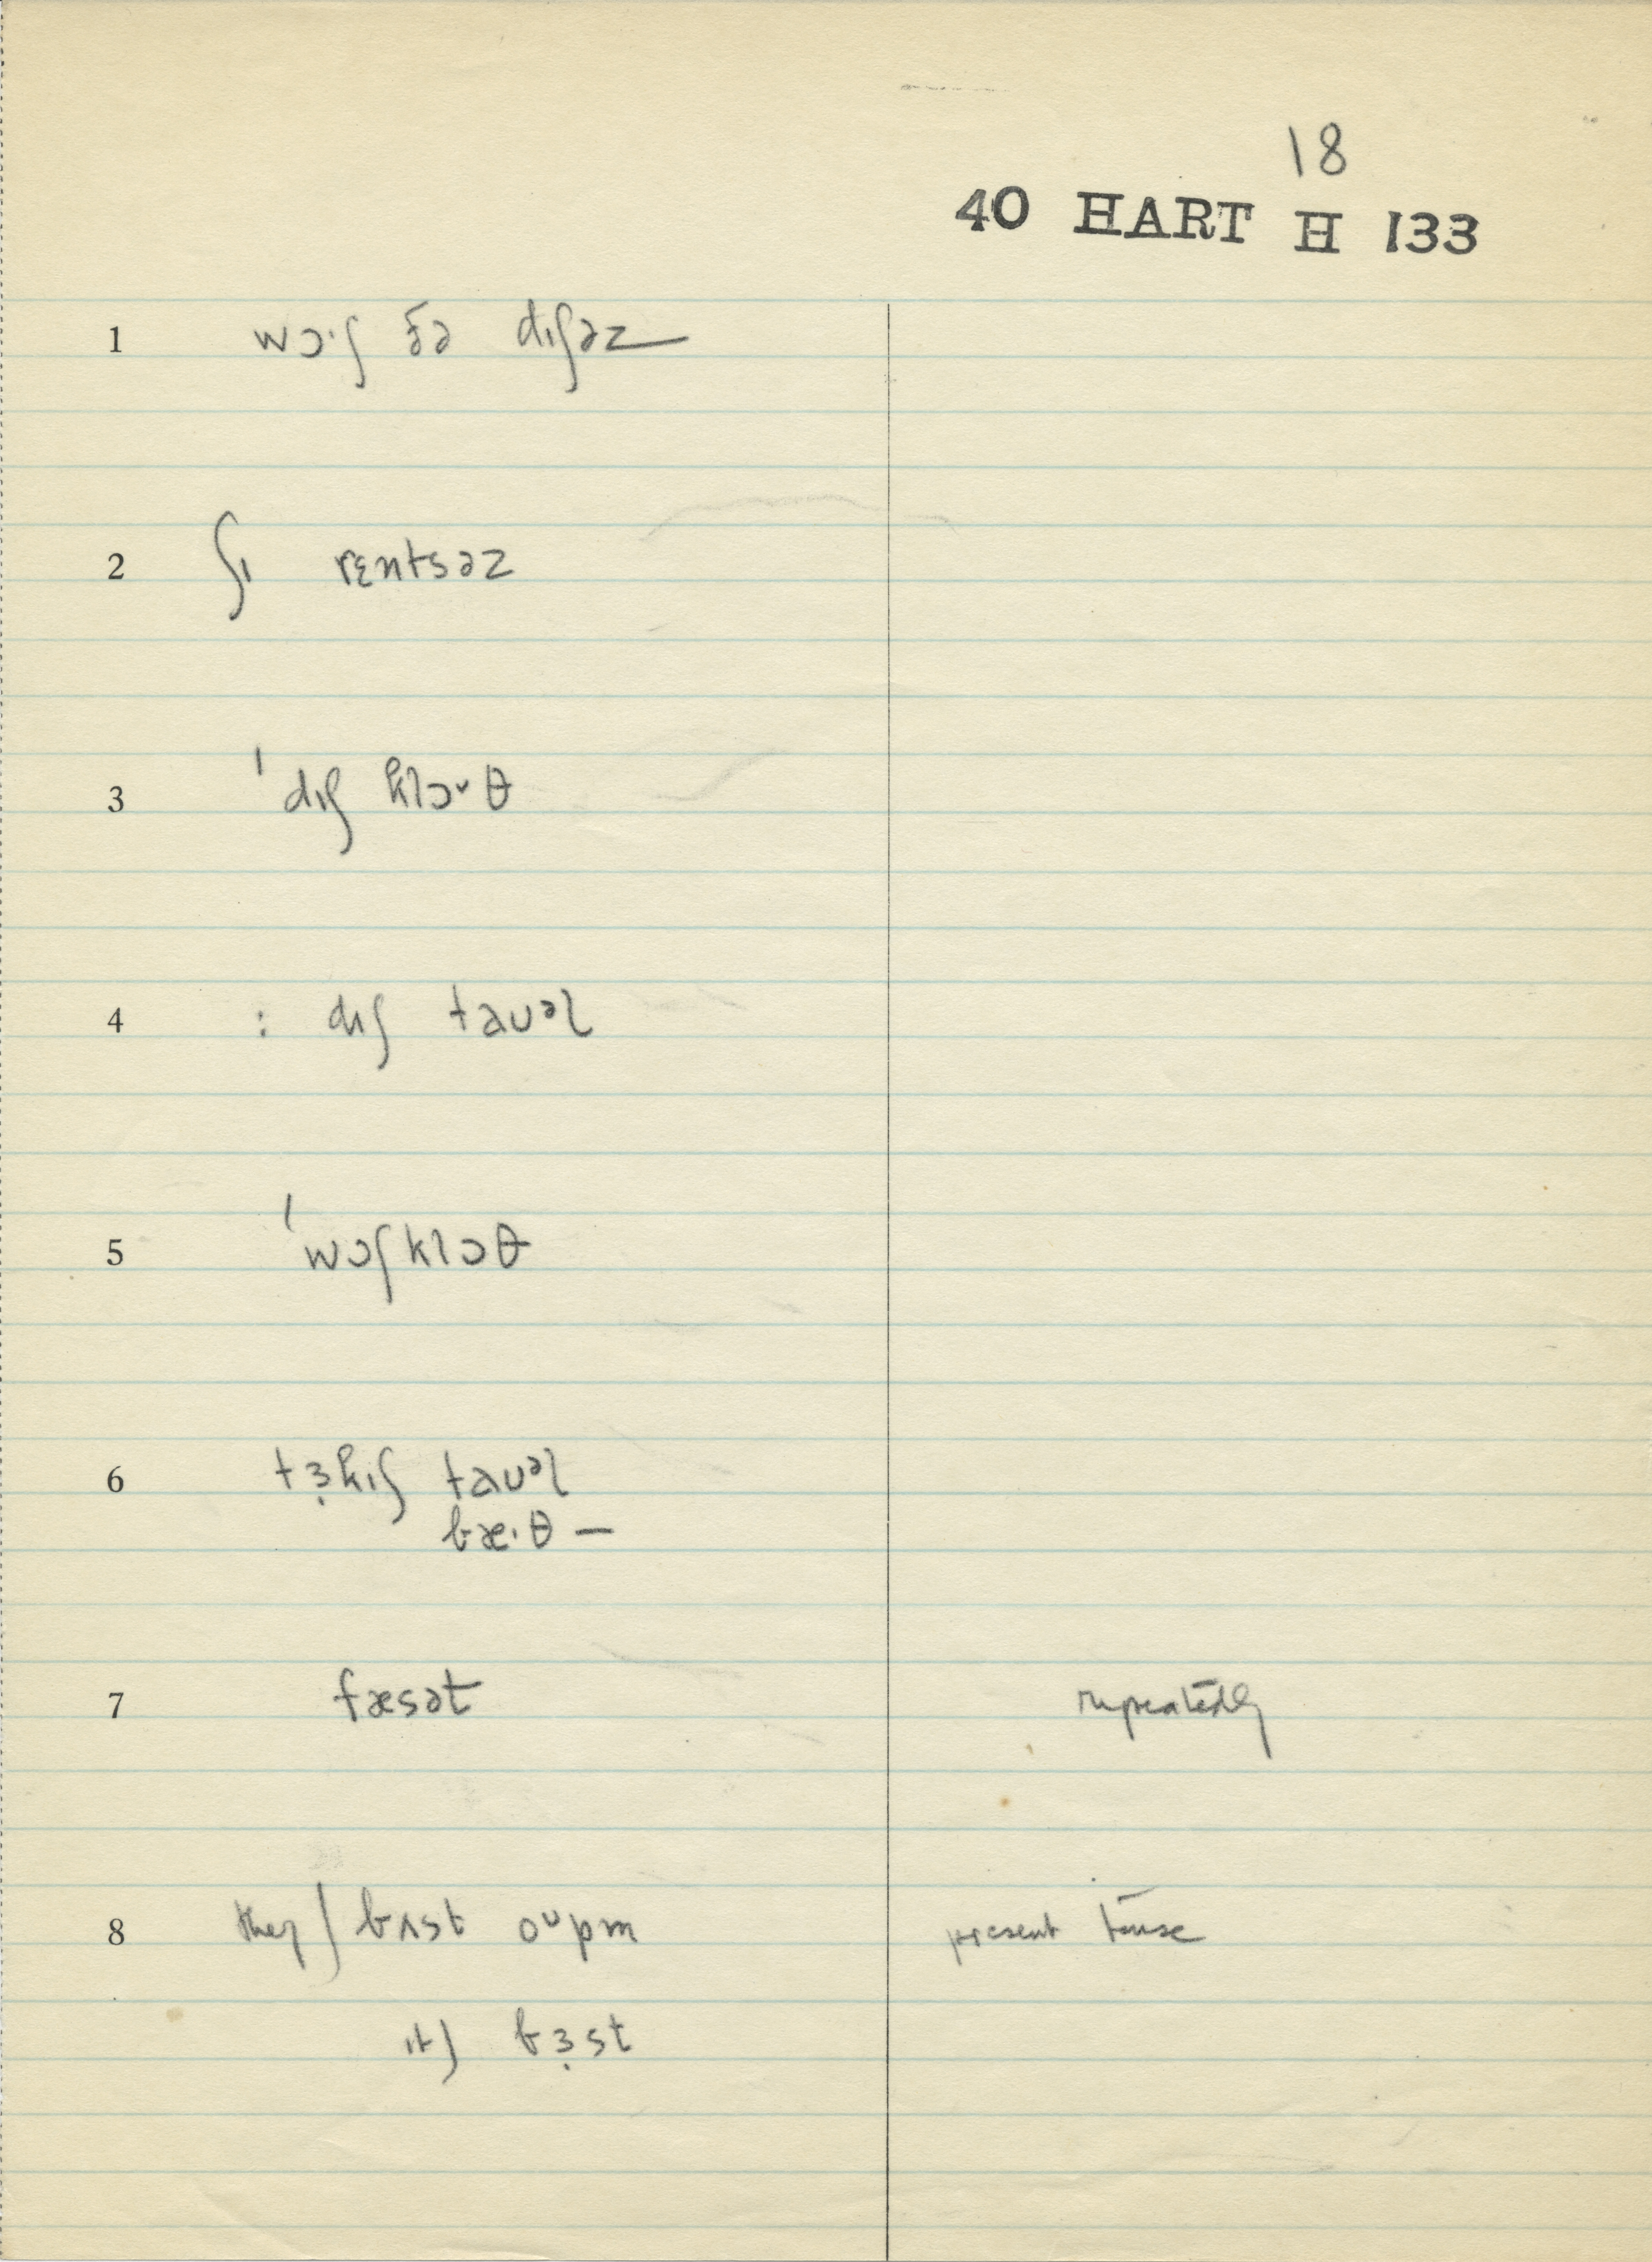 18
40 HART H 133
1 wɔ·ɪʃ ðə dɪʃəz
2 ʃɪ rɛntsəz
3 ˈdɪʃ klɔᵛθ
4 : dɪʃ taʊᵊl
5 ˈwɔʃklɔθ
6 tɜ̣kɪʃ taʊᵊl
bæ·θ —
7 fæsət repeatedly
8 they ʃ bʌst oᵘpm present tense
ɪt) bɜ̣st